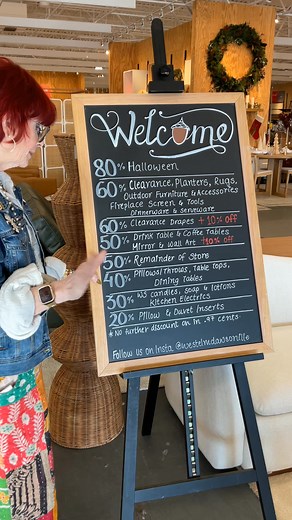 Welcome
80% Halloween
60% Clearance, Planters, Rugs,
Outdoor Furniture & Accessories
Fireplace Screen & Tools
Dinnerware & Serveware
60% Clearance Drapes + 10% off
50% Drink Table & Coffee Tables
Mirror & Wall Art +10% off
50% Remainder of Store
40% Pillows/Throws, Table Tops,
Dining Tables
30% WS candles, Soap & lotions
Kitchen Electrics
20% Pillow & Duvet Inserts
* No further discount on in .97 cents
Follow us on Insta @westelmdawsonville